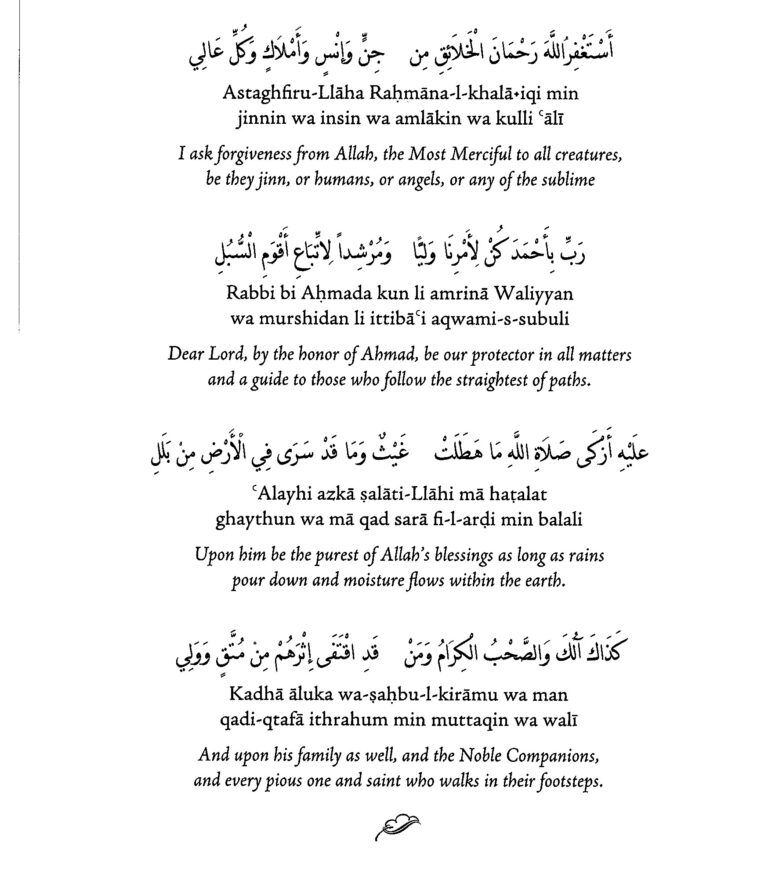 أَسْتَغْفِرُاللَّهَ رَحْمَانَ الْخَلَائِقِ مِن جِنٍّ وَإِنْسٍ وَأَمْلَاكٍ وَكُلِّ عَالِي
Astaghfiru-Llāha Raḥmāna-l-khalā•iqi min
jinnin wa insin wa amlākin wa kulli ʿālī
I ask forgiveness from Allah, the Most Merciful to all creatures,
be they jinn, or humans, or angels, or any of the sublime
رَبِّ بِأَحْمَدَ كُنْ لِأَمْرِنَا وَلِيًّا وَمُرْشِداً لِاتِّبَاعِ أَقْوَمِ الْسُّبُلِ
Rabbi bi Aḥmada kun li amrinā Waliyyan
wa murshidan li ittibāʿi aqwami-s-subuli
Dear Lord, by the honor of Ahmad, be our protector in all matters
and a guide to those who follow the straightest of paths.
عَلَيْهِ أَزْكَى صَلَاةِ اللَّهِ مَا هَطَلَتْ غَيْثٌ وَمَا قَدْ سَرَى فِي الْأَرْضِ مِنْ بَلَلِ
ʿAlayhi azkā ṣalāti-Llāhi mā haṭalat
ghaythun wa mā qad sarā fi-l-arḍi min balali
Upon him be the purest of Allah's blessings as long as rains
pour down and moisture flows within the earth.
كَذَاكَ آلُكَ وَالصَّحْبُ الْكِرَامُ وَمَنْ قَدِ اقْتَفَى إِثْرَهُمْ مِنْ مُتَّقٍ وَوَلِي
Kadhā āluka wa-ṣaḥbu-l-kirāmu wa man
qadi-qtafā ithrahum min muttaqin wa walī
And upon his family as well, and the Noble Companions,
and every pious one and saint who walks in their footsteps.